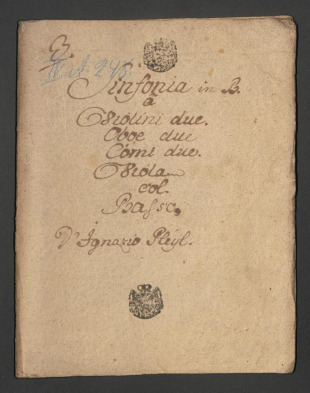 Sinfonia in B.
a
Violini due.
Oboe due
Corni due.
Viola
col
Basso
D'Ignazio Pleyl.